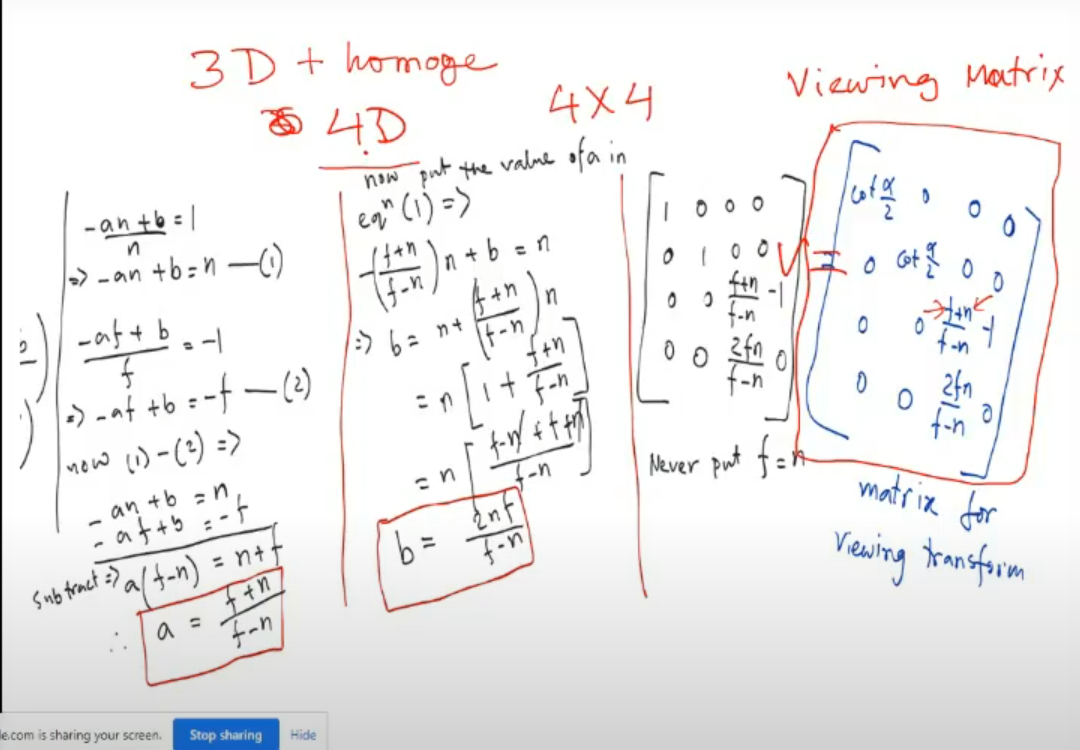 3D + homoge
4D
4X4
Viewing Matrix
-an+b/n = 1
=> -an+b=n —(1)
-af+b/f = -1
=> -af+b=-f —(2)
now (1)-(2) =>
-an+b=n
-af+b=-f
subtract=> a(f-n) = n+f
∴ a = f+n/f-n
now put the value of a in
eqⁿ (1) =>
-(f+n/f-n)n + b = n
=> b = n + (f+n/f-n)n
= n[1 + f+n/f-n]
= n[f-n+f+n/f-n]
b = 2nf/f-n
1 0 0 0
0 1 0 0
0 0 f+n/f-n -1
0 0 2fn/f-n 0
Never put f=n
V =
cot α/2 0 0 0
0 cot α/2 0 0
0 0 f+n/f-n -1
0 0 2fn/f-n 0
matrix for
viewing transform
le.com is sharing your screen. Stop sharing Hide